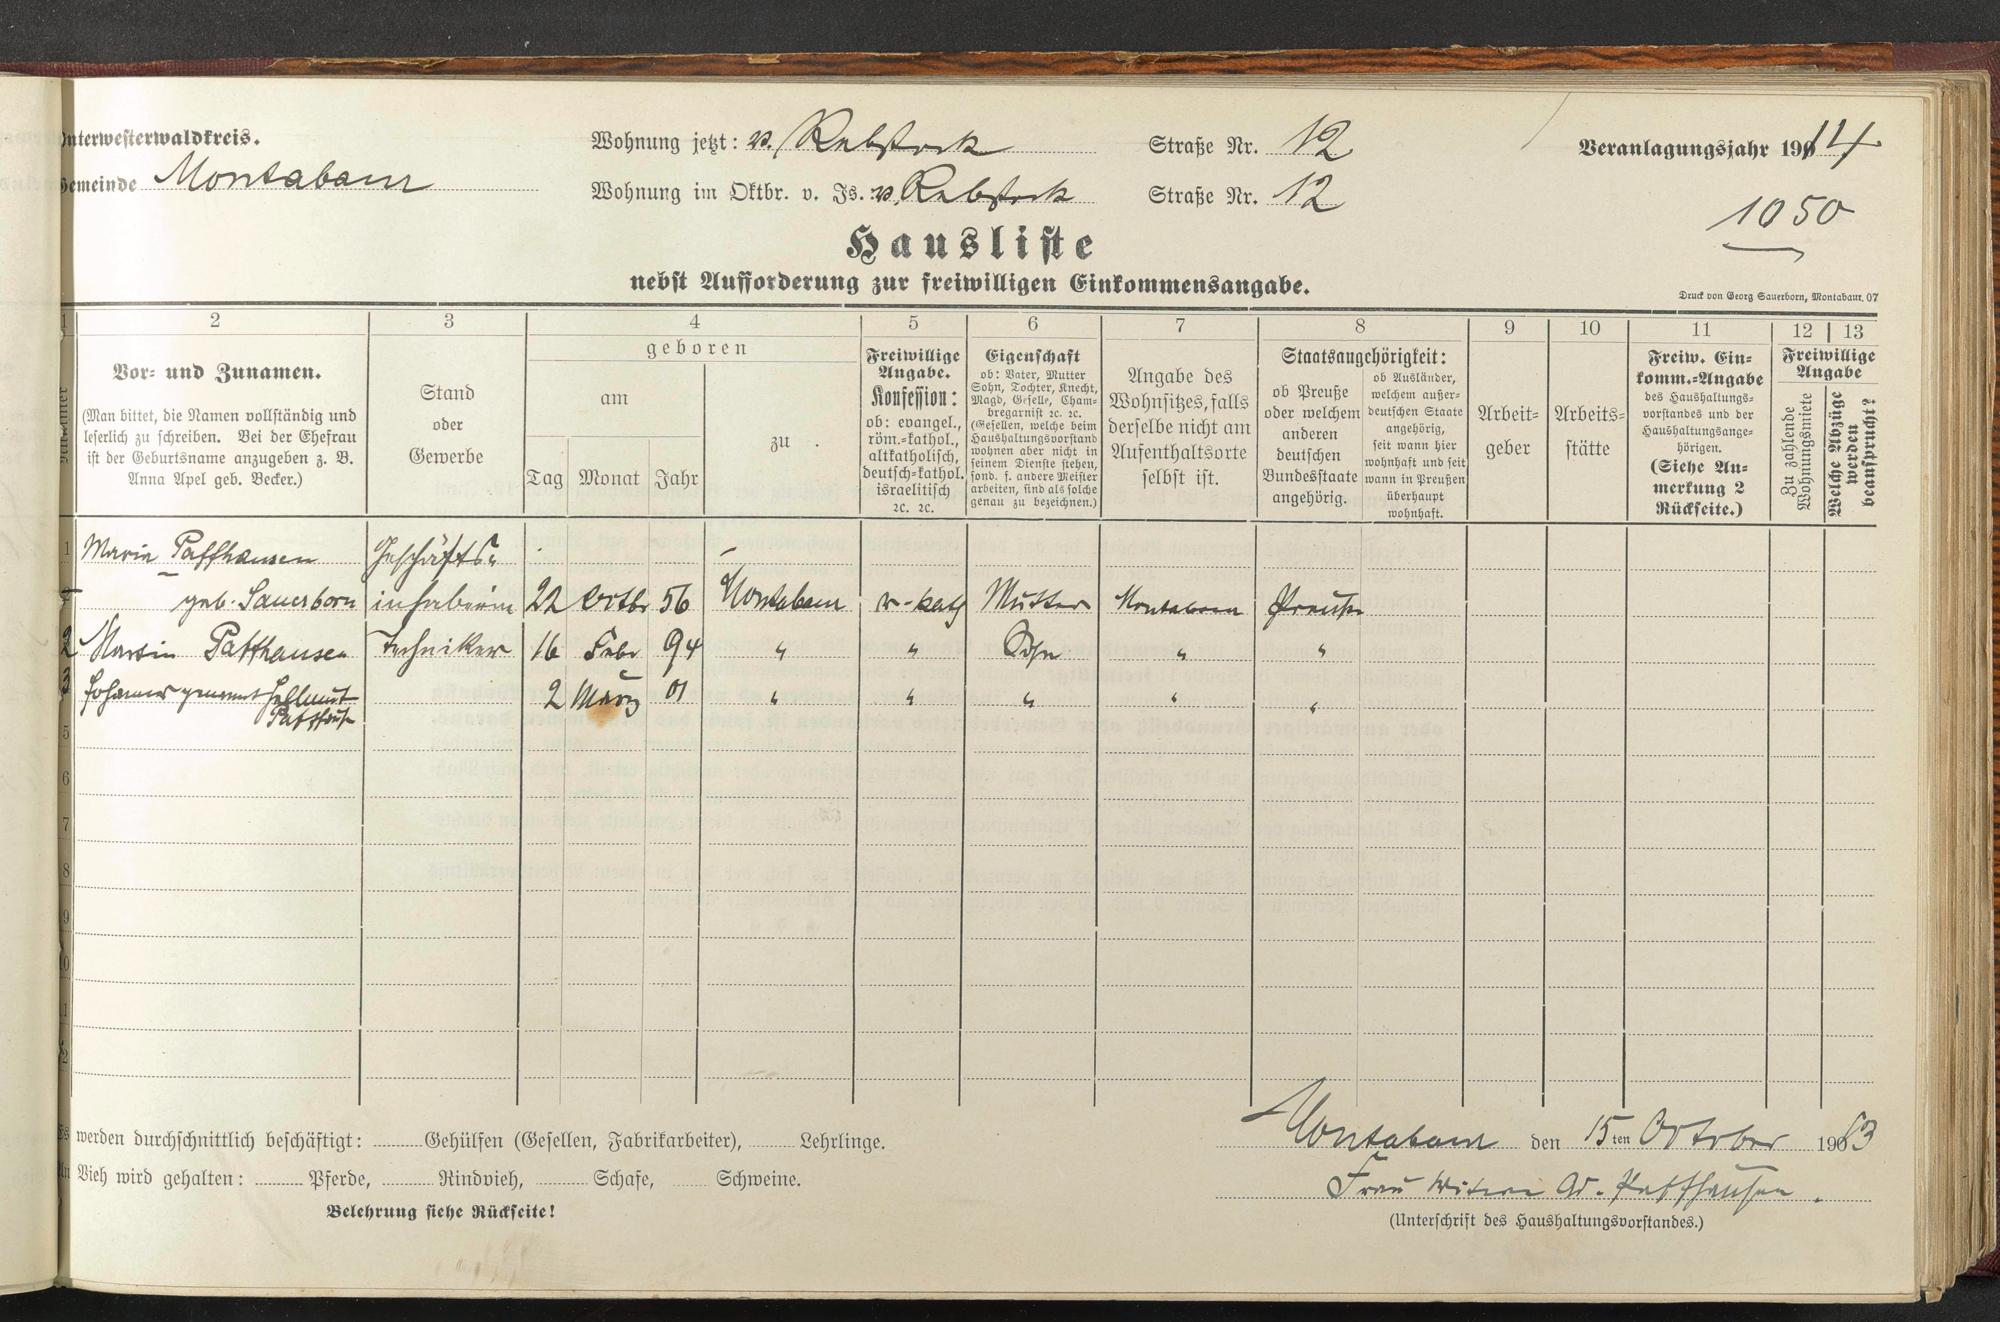 Unterwesterwaldkreis.
Gemeinde Montabaur
Wohnung jetzt: v. Rebstock Straße Nr. 12
Wohnung im Oktbr. v. Js.: v. Rebstock Straße Nr. 12
Veranlagungsjahr 1914
1050
Hausliste
nebst Aufforderung zur freiwilligen Einkommensangabe.
Druck von Georg Sauerborn, Montabaur. 07
1 2 3 4 5 6 7 8 9 10 11 12 13
Vor- und Zunamen.
(Man bittet, die Namen vollständig und
leserlich zu schreiben. Bei der Ehefrau
ist der Geburtsname anzugeben z. B.
Anna Apel geb. Becker.)
Stand
oder
Gewerbe
geboren
am
Tag Monat Jahr
zu
Freiwillige
Angabe.
Konfession:
ob: evangel.,
röm.-kathol.,
altkatholisch,
deutsch-kathol.
israelitisch
2c. 2c.
Eigenschaft
ob: Vater, Mutter
Sohn, Tochter, Knecht,
Magd, Geselle, Cham-
bregarnist 2c. 2c.
(Gesellen, welche beim
Haushaltungsvorstand
wohnen aber nicht in
seinem Dienste stehen,
sond. f. andere Meister
arbeiten, sind als solche
genau zu bezeichnen.)
Angabe des
Wohnsitzes, falls
derselbe nicht am
Aufenthaltsorte
selbst ist.
Staatsangehörigkeit:
ob Preuße
oder welchem
anderen
deutschen
Bundesstaate
angehörig.
ob Ausländer,
welchem außer-
deutschen Staate
angehörig,
seit wann hier
wohnhaft und seit
wann in Preußen
überhaupt
wohnhaft.
Arbeit-
geber
Arbeits-
stätte
Freiw. Ein-
komm.-Angabe
des Haushaltungs-
vorstandes und der
Haushaltungsange-
hörigen.
(Siehe An-
merkung 2
Rückseite.)
Freiwillige
Angabe
Zu zahlende
Wohnungsmiete
Welche Abzüge
werden
beansprucht?
1 Maria Paffhausen Geschäfts-
geb. Sauerborn inhaberin 22 Octbr 56 Montabaur r-kath Mutter Montabaur Preuße
2 Martin Paffhausen Techniker 16 Febr 94 " " Sohn " "
3 Johannes genannt Hellmut 2 März 01 " " " " "
Paffhausen
5
6
7
8
9
10
11
12
Es werden durchschnittlich beschäftigt: Gehülfen (Gesellen, Fabrikarbeiter), Lehrlinge.
An Vieh wird gehalten: Pferde, Rindvieh, Schafe, Schweine.
Belehrung siehe Rückseite!
Montabaur den 15ten October 1913
Frau Witwe Ad. Paffhausen.
(Unterschrift des Haushaltungsvorstandes.)